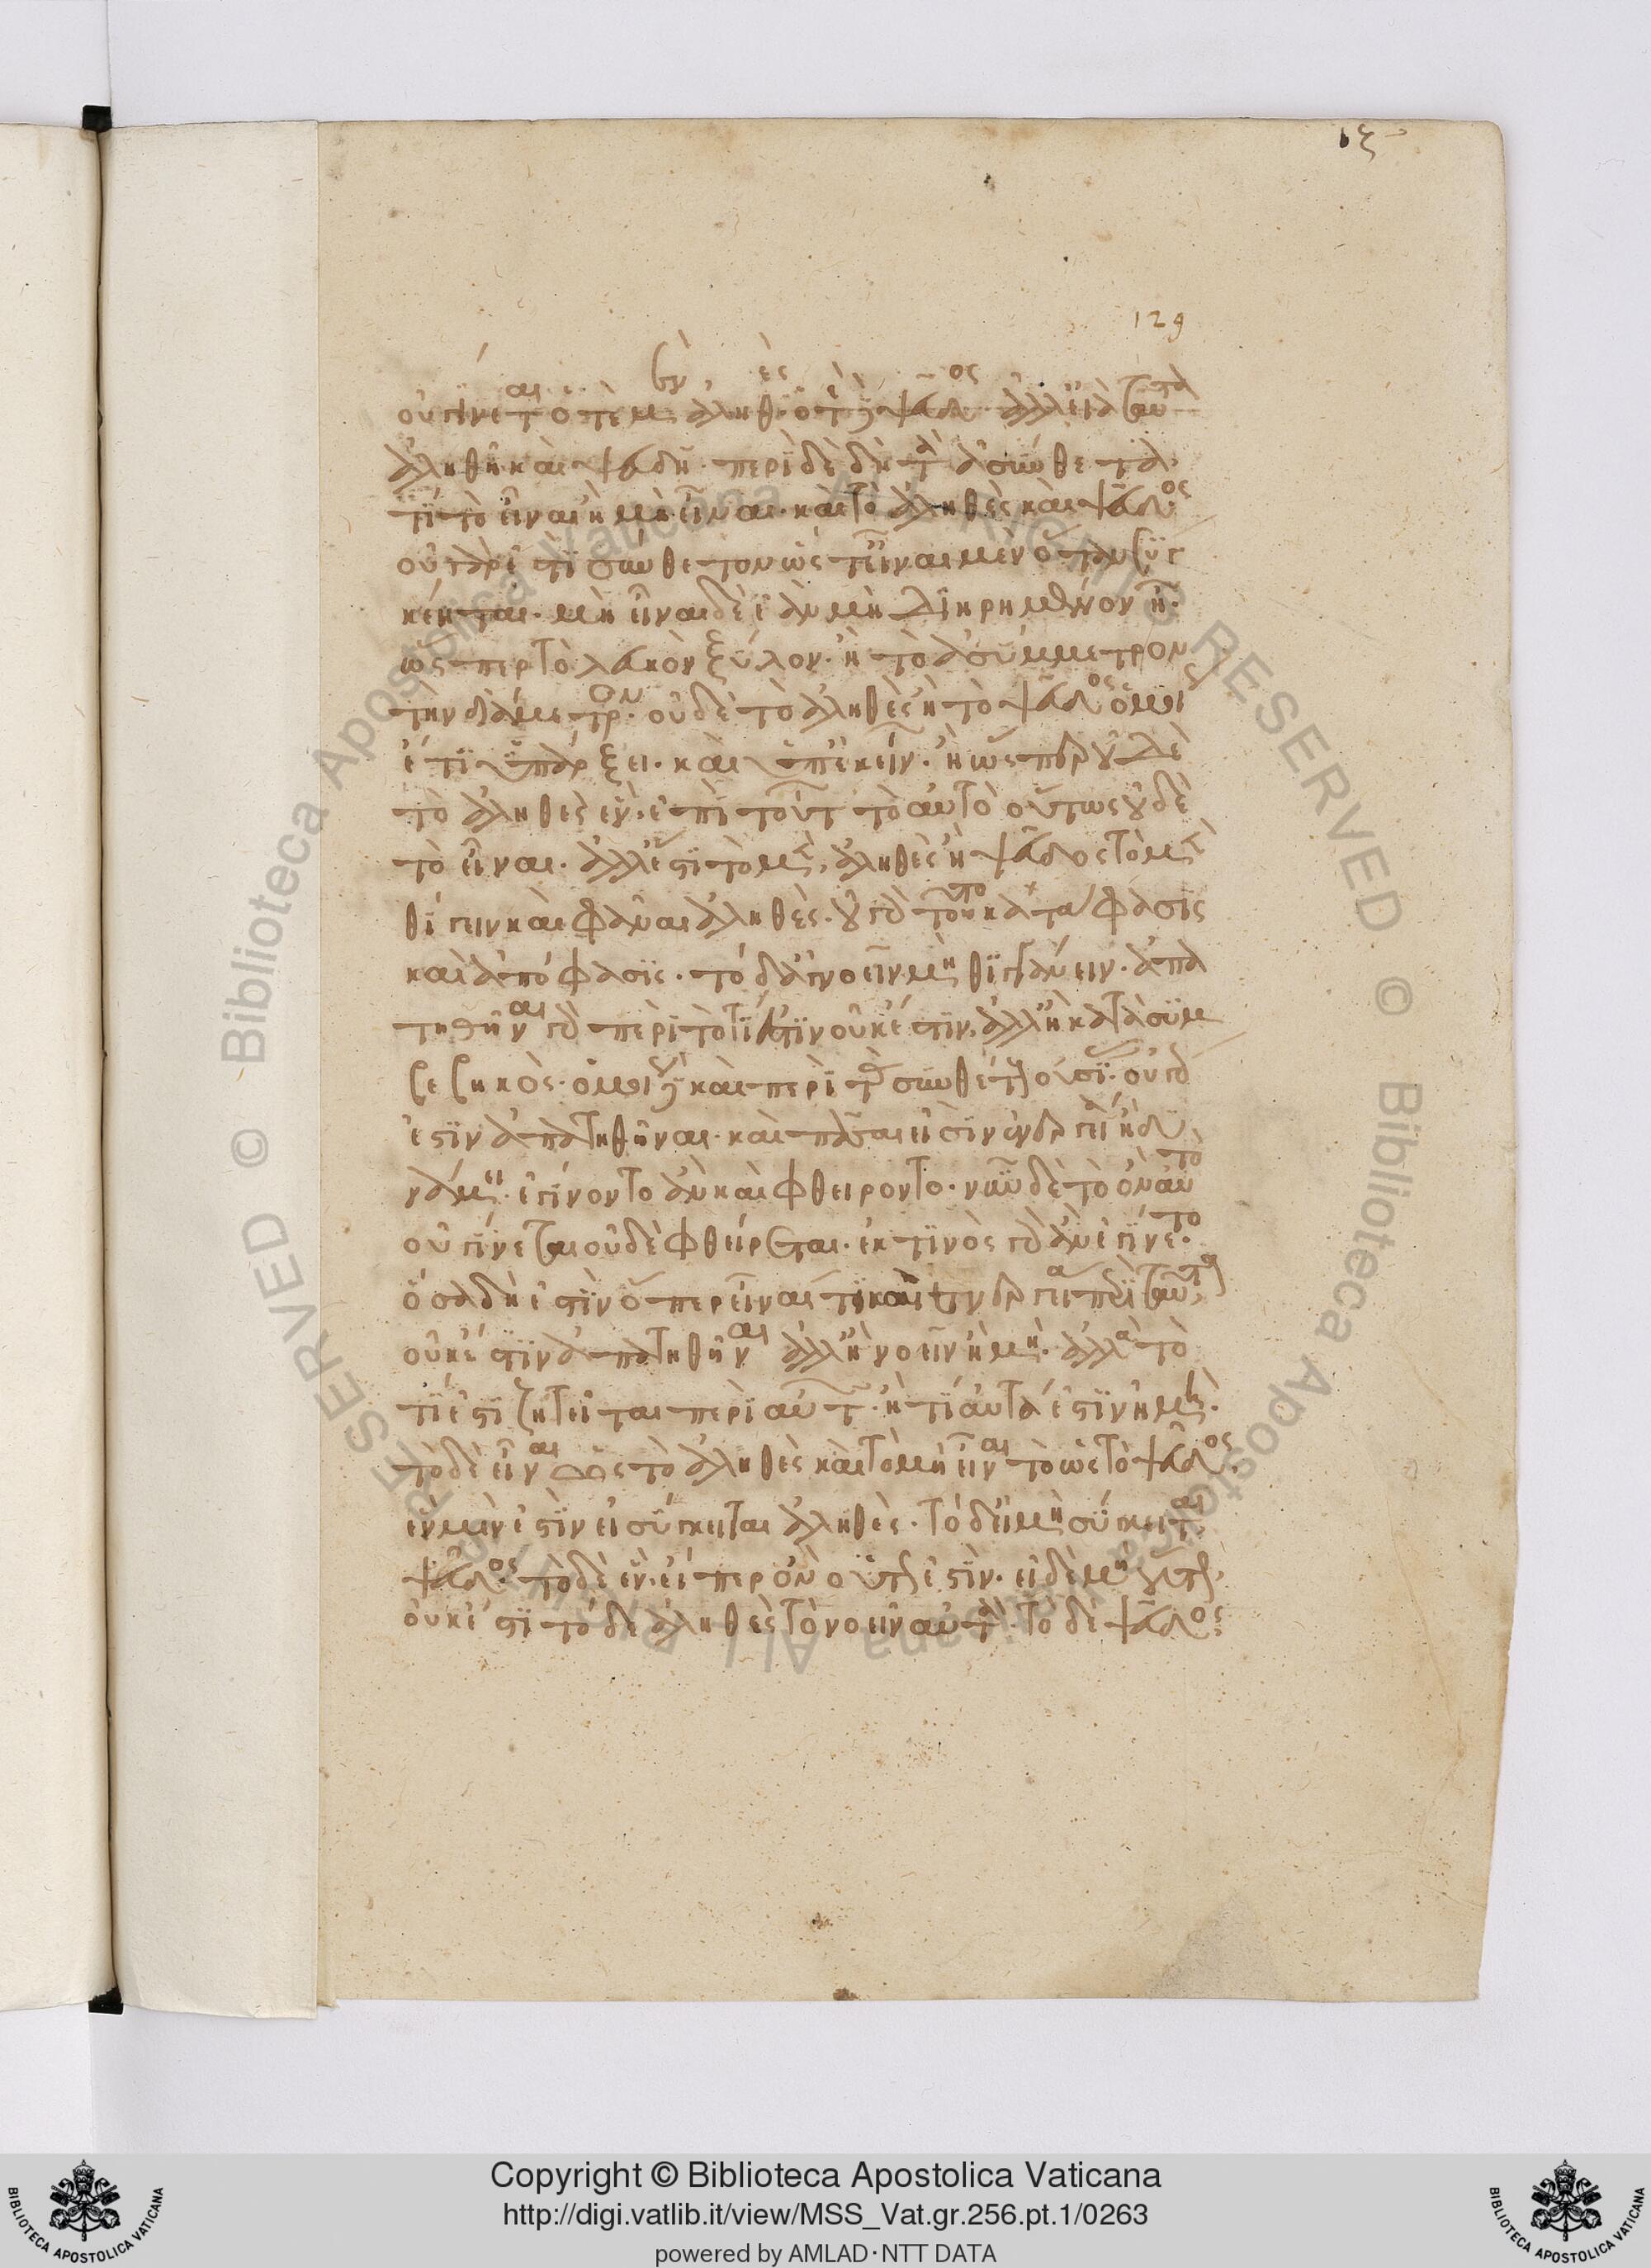 ιξ
129
οὐ γίνεται ὁτὲ μὲν ἀληθὲς ὁτὲ δὲ ψεῦδος. ἀλλ' ἀεὶ ταὐτὰ
ἀληθῆ καὶ ψευδῆ. περὶ δὲ δὴ τὰ ἀσύνθετα,
τί τὸ εἶναι ἢ μὴ εἶναι. καὶ τὸ ἀληθὲς καὶ ψεῦδος.
οὐ γάρ ἐστι σύνθετον ὥστ' εἶναι μὲν ὅταν συγ
κέηται. μὴ εἶναι δὲ ἐὰν μὴ διηρημένον ἦ.
ὥσπερ τὸ λευκὸν ξύλον. ἢ τὸ ἀσύμμετρον
τὴν διάμετρον. οὐδὲ τὸ ἀληθὲς ἢ τὸ ψεῦδος ὁμοίως
ἔτι ὑπάρξει. καὶ ἐπ' ἐκείνων. ἢ ὥσπερ οὐδὲ
τὸ ἀληθὲς ἐν. ἐπὶ τούτων τὸ αὐτὸ οὕτως οὐδὲ
τὸ εἶναι. ἀλλ' ἔστι τὸ μὲν, ἀληθὲς ἢ ψεῦδος τὸ μὲν
θίγειν καὶ φάναι ἀληθές. οὐ γὰρ τοῦτο κατάφασις
καὶ ἀπόφασις. τὸ δ' ἀγνοεῖν μὴ θιγγάνειν. ἀπα
τηθῆναι γὰρ περὶ τὸ τί ἐστιν οὐκ ἔστιν, ἀλλ' ἢ κατὰ συμ
βεβηκός. ὁμοίως δὲ καὶ περὶ τὰς συνθέτους οὐσίας. οὐ γὰρ
ἔστιν ἀπατηθῆναι. καὶ πᾶσαι εἰσὶν ἐνεργείᾳ οὐ
δυνάμει. ἐγίνοντο ἂν καὶ φθείροντο. νῦν δὲ τὸ ὂν αὐτὸ
οὐ γίνεται οὐδὲ φθείρεται. ἔκ τινος γὰρ ἂν ἐγίνετο.
ὅσα δή ἐστιν ὅπερ εἶναι τι καὶ ἐνεργείᾳ περὶ ταῦτα
οὐκ ἔστιν ἀπατηθῆναι ἀλλ' ἢ νοεῖν ἢ μή. ἀλλὰ τὸ
τί ἐστι ζητεῖται περὶ αὐτῶν. ἢ τί αὐτά ἐστιν ἢ μή.
τὸ δὲ εἶναι ὡς τὸ ἀληθὲς καὶ τὸ μὴ εἶναι τὸ ὡς τὸ ψεῦδος.
ἓν μὲν ἐστιν εἰ σύγκειται ἀληθές. τὸ δ' εἰ μὴ σύγκειται
ψεῦδος. τὸ δὲ ἕν. εἴπερ ὂν οὕτως ἐστίν. εἰ δὲ μὴ οὕτως,
οὐκ ἔστι τὸ δὲ ἀληθὲς τὸ νοεῖν αὐτά. τὸ δὲ ψεῦδος
Copyright © Biblioteca Apostolica Vaticana
http://digi.vatlib.it/view/MSS_Vat.gr.256.pt.1/0263
powered by AMLAD·NTT DATA